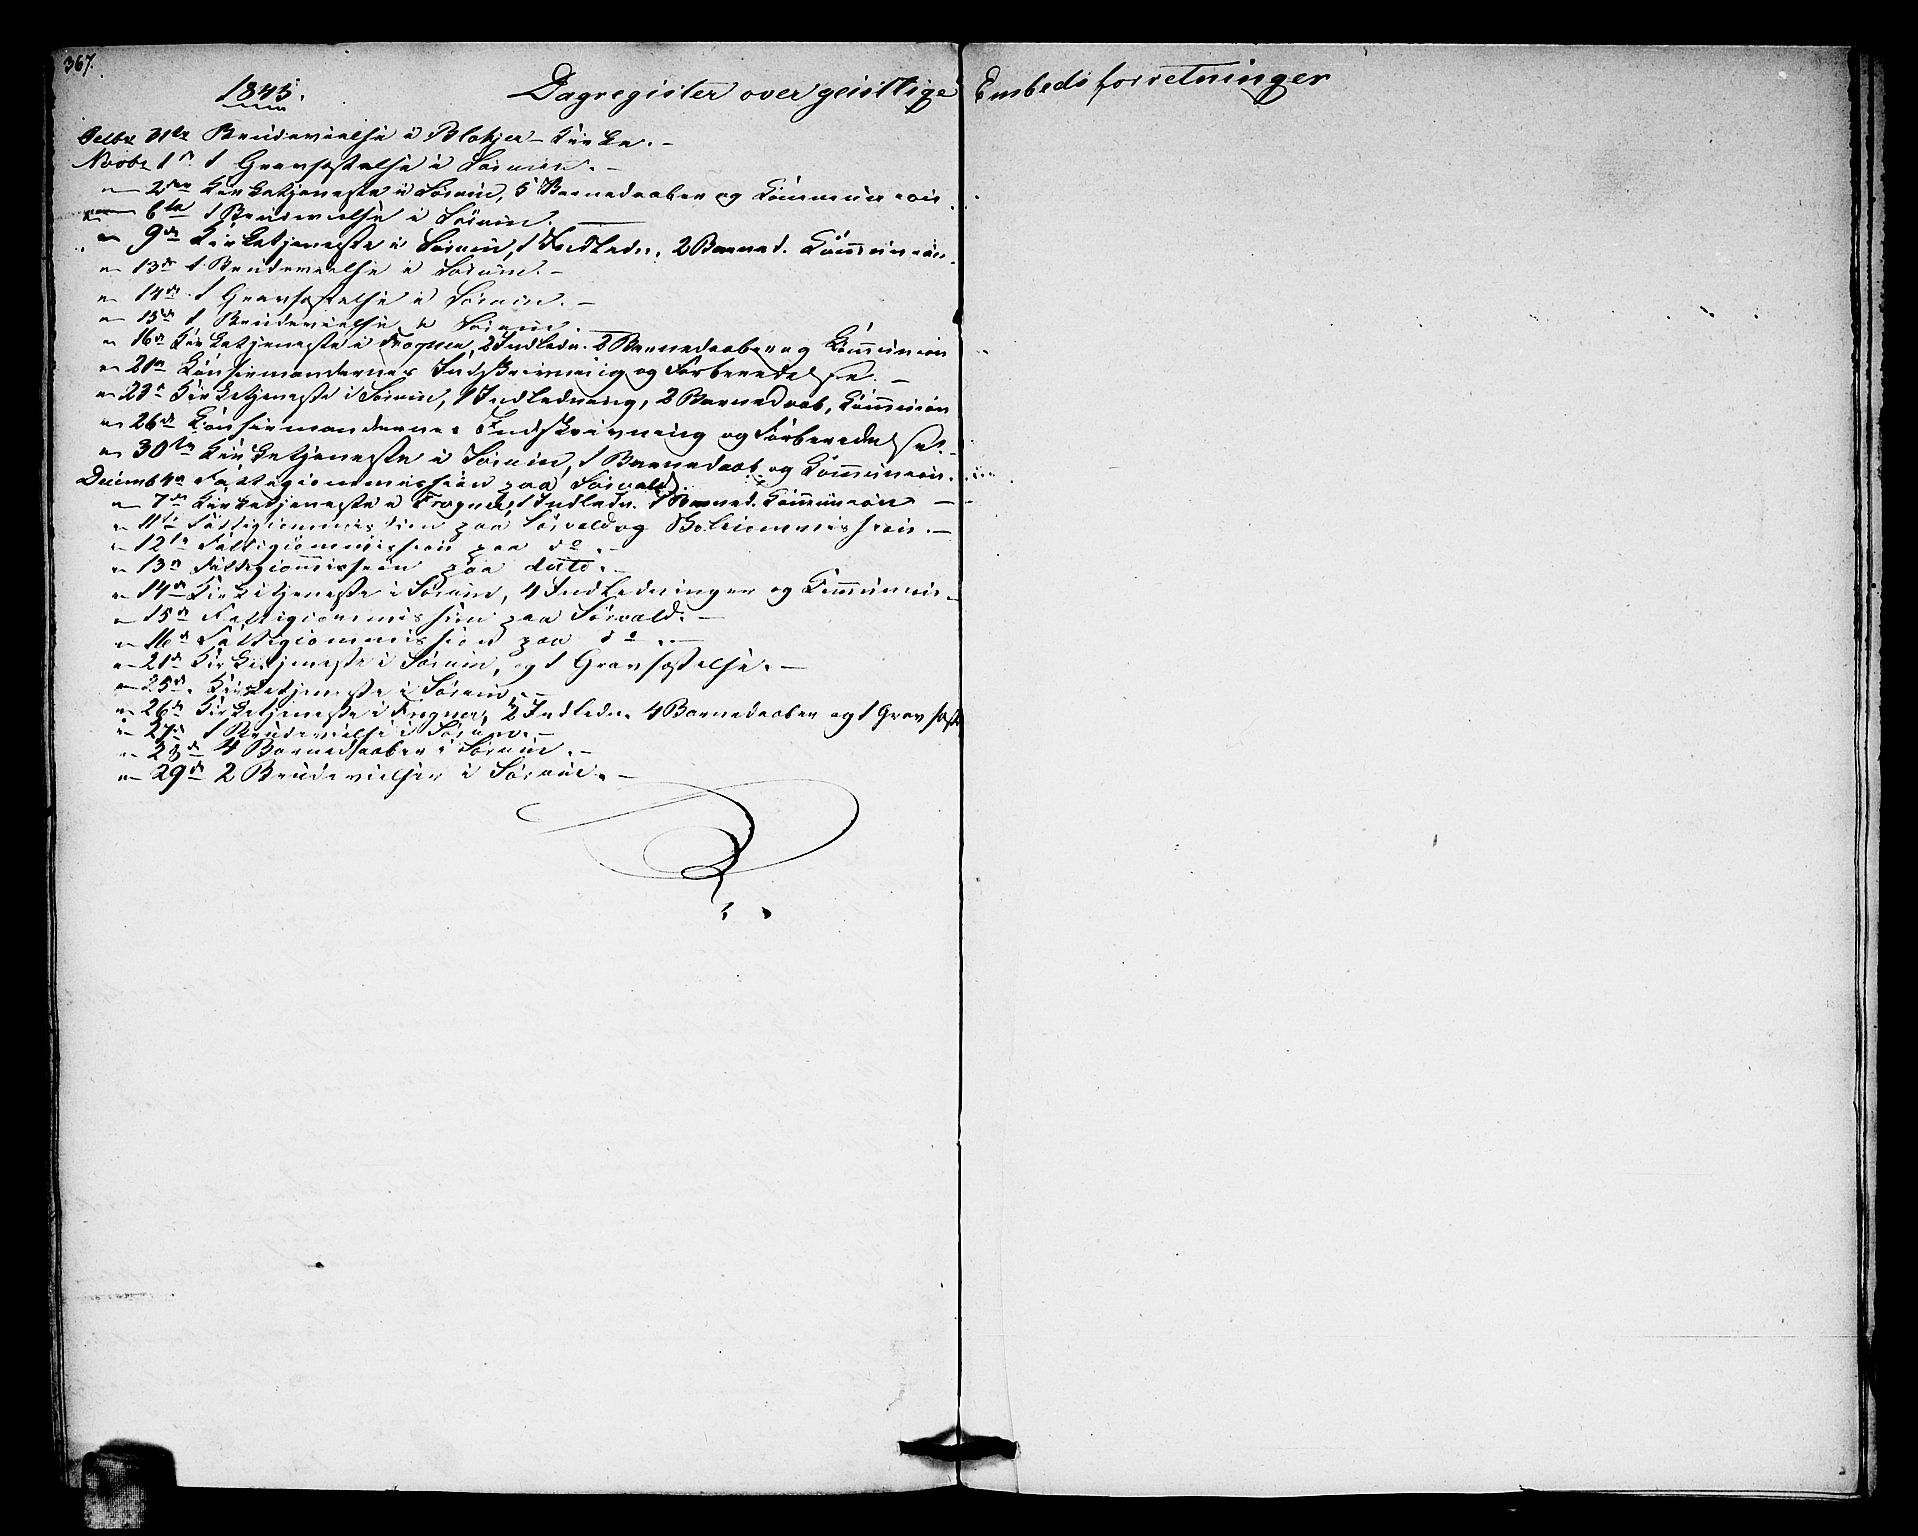 367.
1845. Dagregister over geistlige Embedsforretninger
Octbr 31te Brudevielse i Blakjer-Kirke. -
Novbr 1n 1 Gravfæstelse i Sørum. -
" 2den Kirketjeneste i Sørum, 5 Barnedaaber og Communion.
" 6te 1 Brudevielse i Sørum.
" 9de Kirketjeneste i Sørum, 1 Indledn. 2 Barned. Communion.
" 13de 1 Brudevielse i Sørum. -
" 14de 1 Gravfæstelse i Sørum. -
" 15de 1 Brudevielse i Sørum. -
" 16de Kirketjeneste i Frogner, 2 Indledn. 2 Barnedaaber og Communion
" 21n Confirmandernes Indskrivning og Forberedelse. -
" 23de Kirketjeneste i Sørum, 1 Indledning, 2 Barnedaab, Communion
" 26de Confirmandernes Indskrivning og Forberedelse. -
" 30te Kirketjeneste i Sørum, 1 Barnedaab og Communion.
Decemb 4n Fattigcommission paa Sørvald.
" 7de Kirketjeneste i Frogner, 1 Indledn. 1 Barned. Communion -
" 11te Fattigcommission paa Sørvald og Skolecommission. -
" 12te Fattigcommission paa do. -
" 13n Fattigcommission paa dito. -
" 14de Kirketjeneste i Sørum, 4 Indledninger og Communion -
" 15de Fattigcommission paa Sørvald. -
" 16de Fattigcommission paa do. -
" 21de Kirketjeneste i Sørum, og 1 Gravfæstelse. -
" 25de. Kirketjeneste i Sørum. -
" 26de Kirketjeneste i Frogner, 2 Indledn. 4 Barnedaaber og 1 Gravfæst
" 27de 1 Brudevielse i Sørum. -
" 28de 4 Barnedaaber i Sørum. -
" 29de 2 Brudevielser i Sørum. -